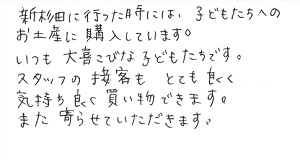 新杉田に行った時には、子どもたちへの
お土産に購入しています。
いつも大喜こびな子どもたちです。
スタッフの接客もとても良く
気持ち良く買い物できます。
また寄らせていただきます。